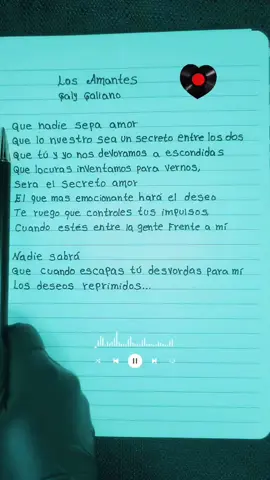 Los Amantes
Galy Galiano
Que nadie sepa amor
Que lo nuestro sea un secreto entre los dos
Que tú y yo nos devoramos a escondidas
Que locuras inventamos para vernos,
Sera el secreto amor
El que mas emocionante hará el deseo
Te ruego que controles tus impulsos
Cuando estés entre la gente frente a mí
Nadie sabrá
Que cuando escapas tú desvordas para mí
Los deseos reprimidos...